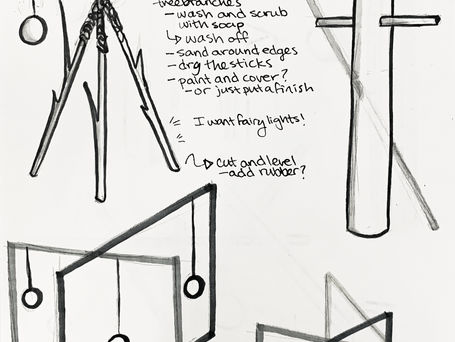 treebranches
- wash and scrub
with soap
↳ wash off
- sand around edges
- dry the sticks
- paint and cover?
- or just put a finish
I want fairy lights!
↳ cut and level
- add rubber?